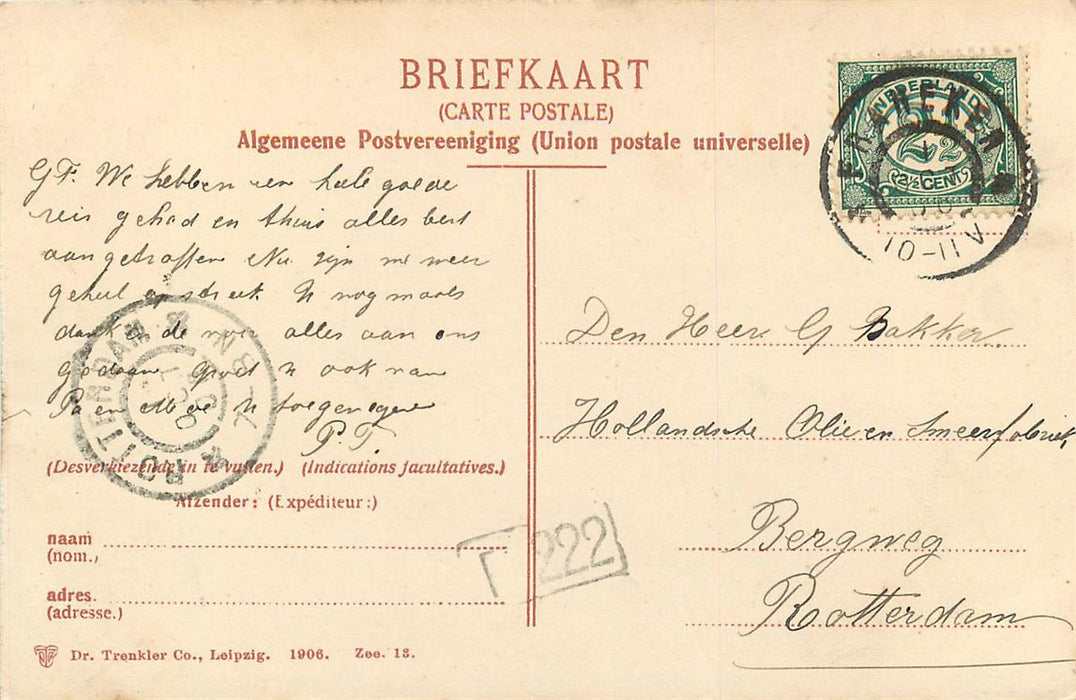 BRIEFKAART
(CARTE POSTALE)
Algemeene Postvereeniging (Union postale universelle)
NEDERLAND
2½
2½ CENT
10-11V
G.F. We hebben een heele goede
reis gehad en thuis alles best
aangetroffen Nu zijn we weer
geheel op streek U nogmaals
dank u de voor alles aan ons
gedaan groet u ook van
Pa en Moe u toegenegen
P.T.
ROTTERDAM
(Desverkiezende in te vullen.) (Indications facultatives.)
Afzender: (Expéditeur:)
naam
(nom.)
adres.
(adresse.)
T 222
Den Heer G Bakker
Hollandsche Olie en Smeerfabriek
Bergweg
Rotterdam
Dr. Trenkler Co., Leipzig. 1906. Zee. 13.